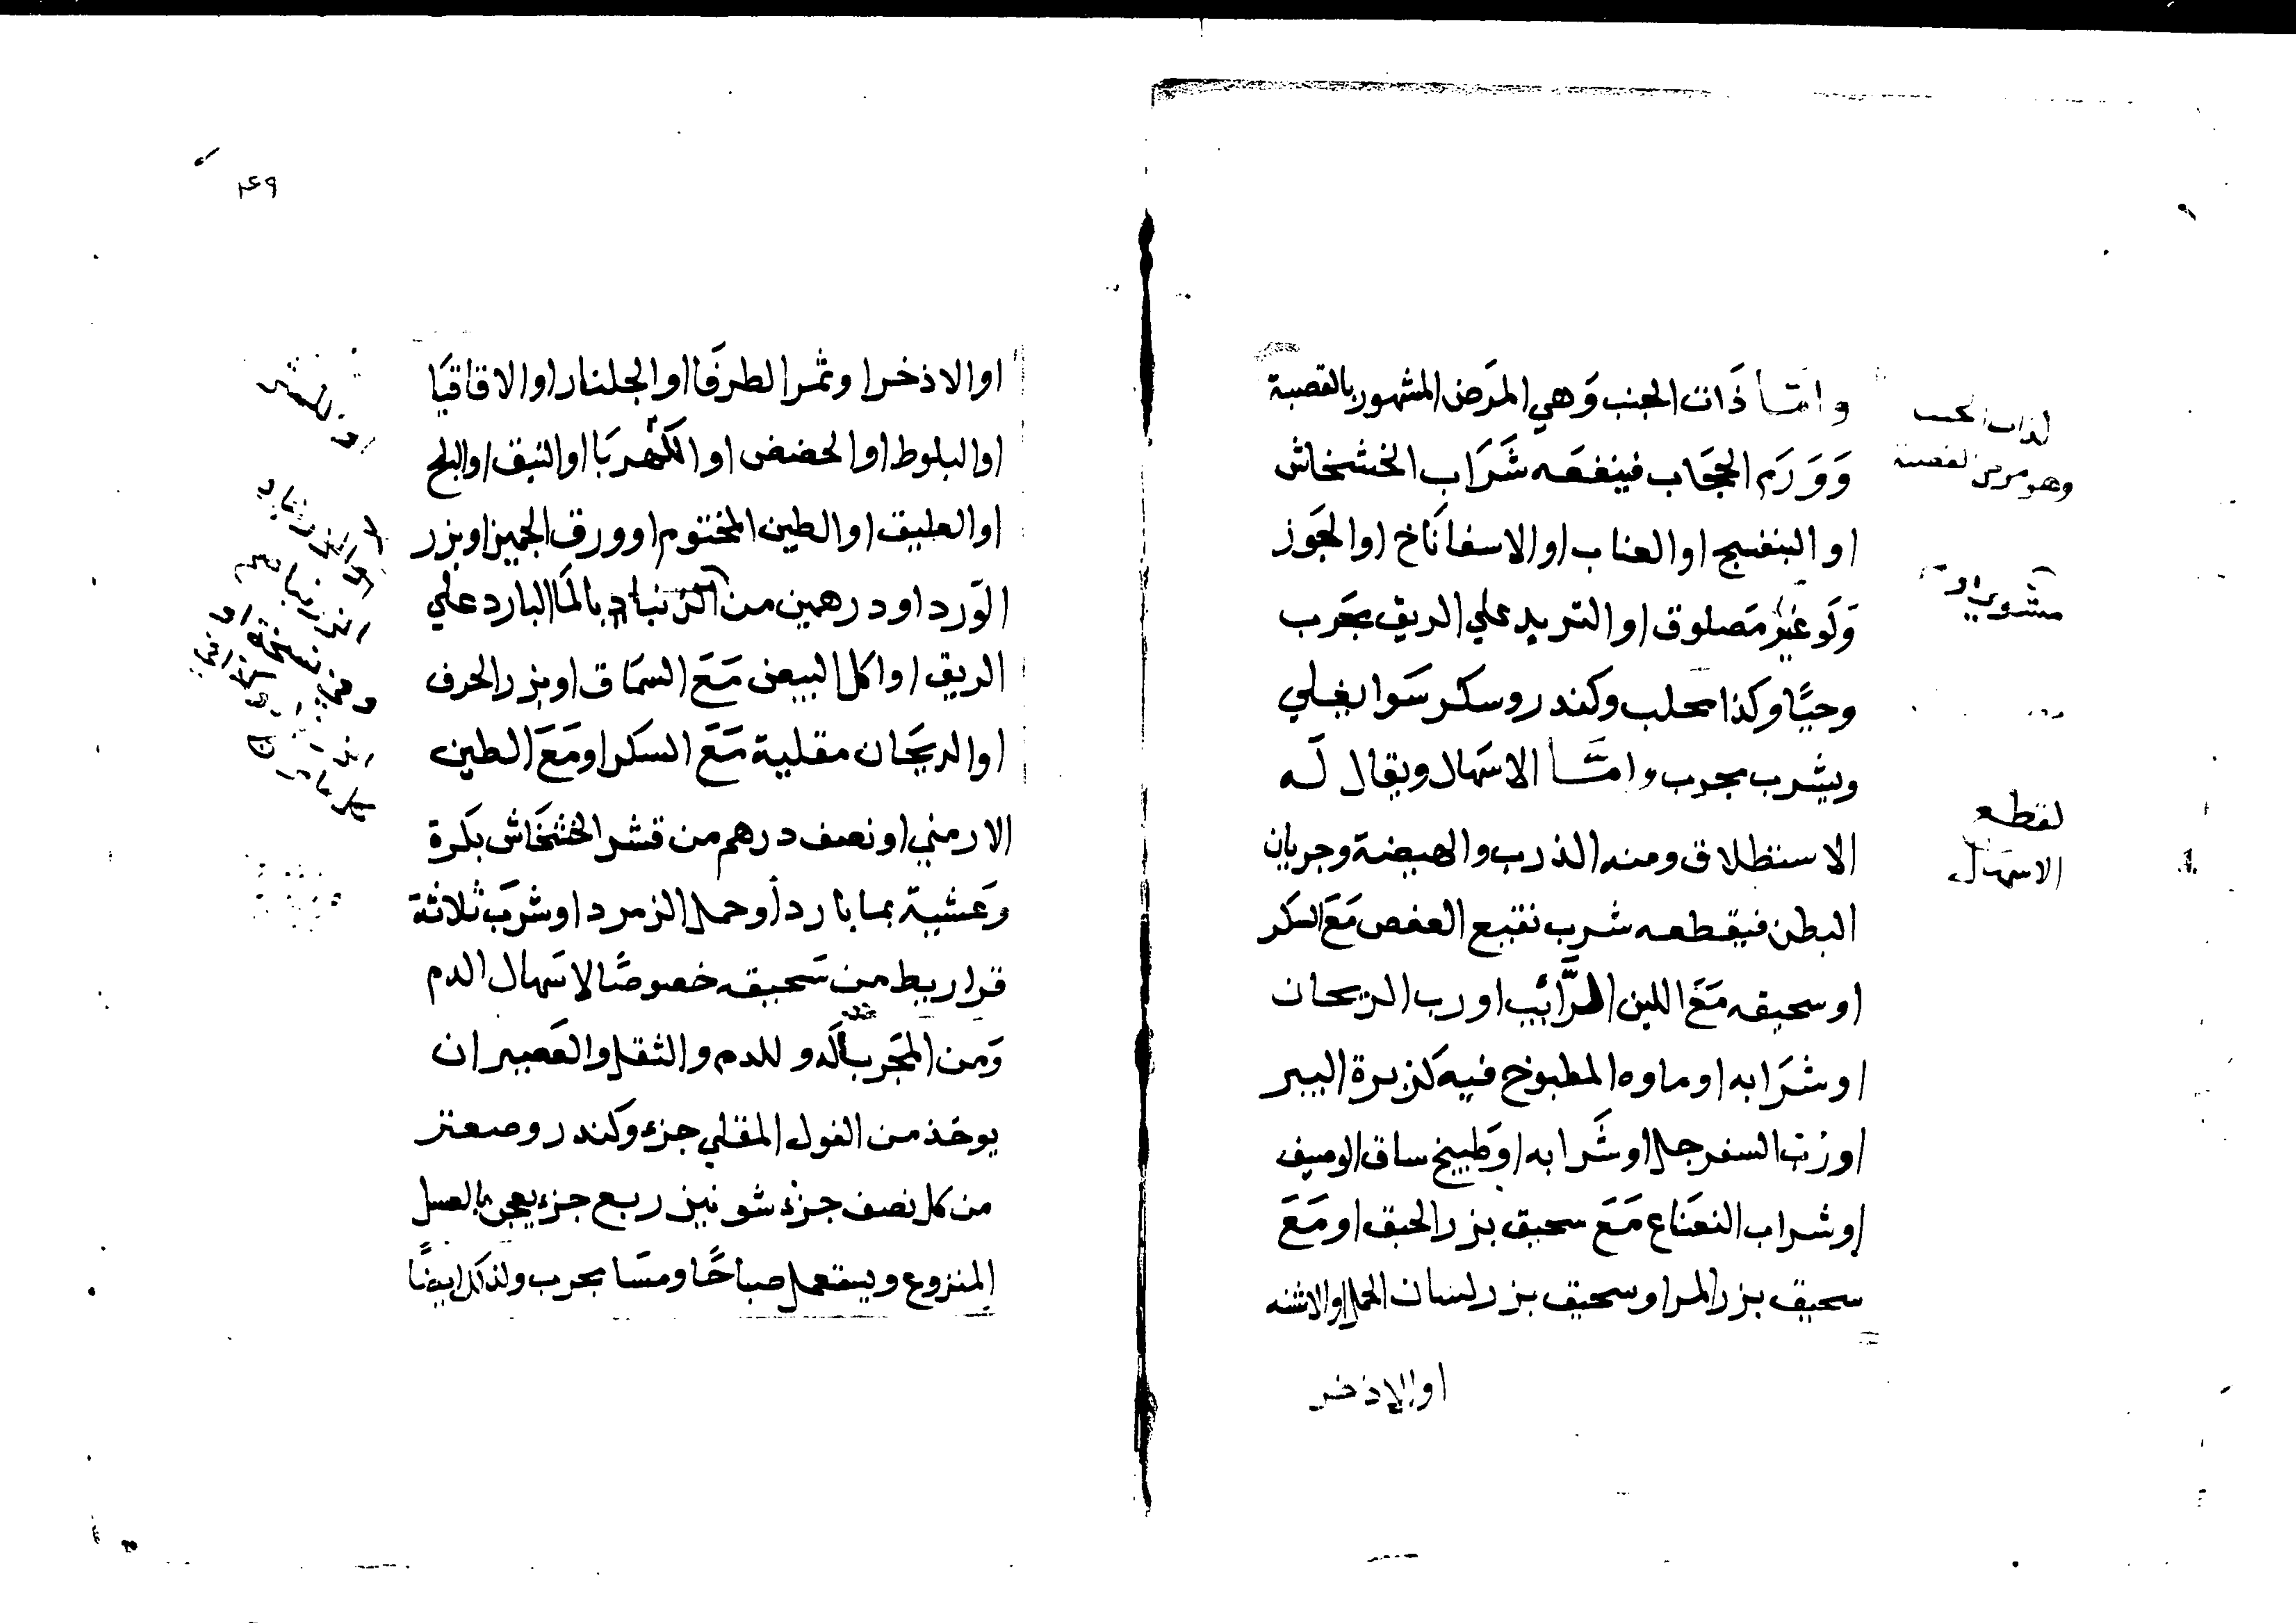 وامّا ذَات الجنب وَهي المرَض المشهور بالقصبة
وَوَرَم الحجَاب فينفعَه شَرَاب الخشخاش
او البنفسج او العناب او الاسفانَاخ او الجَوز
وَلَو غير مَصلوق او التربد علي الريق مجَرب
وحيًّا وكذا محلب وكندر وسكر سَوا يغلي
ويشرب مجرب وامّا الاسهَال ويقال لَه
الاستطلاق ومنه الذرب والهيضة وجريان
البطن فيقطعه شرب نقيع العفص مَعَ السكر
او سحيقه مَعَ اللبن الرَّائب او رب الريحان
او شرَابه او ماوه المطبوخ فيه كزبرة البير
او رُب السفرجل او شَرابه او طَبيخ ساق الوصيف
او شراب النعنَاع مَعَ سحيق بزر الحبق او مَعَ
سحيق بزر المر او سحيق بزر لسان الحمل او الاشنه
او الاذخر
لذات الجنب
وهو مرض القصبة
مشوي او
لقطع
الاسهال
٤٩
او الاذخر او ثمر الطرفَا او الجلنار او الاقاقيَا
او البلوط او الحضض او الكَهربَا او النبق او البلح
او العليق او الطين المختوم او ورق الجميز او بزر
الوَرد او درهمين من الزرنباد بالمَا البارد علي
الريق او اكل البيض مَعَ السمَاق او بزر الحرف
او الريحَان مقلية مَعَ السكر او مَعَ الطين
الارمني او نصف درهم من قشر الخشخَاش بكرة
وعَشية بما بارد أو حمل الزمرد او شرَب ثلاثة
قراريط من سَحيقه خصوصًا لاسهَال الدم
وَمن المجَرب لَه وللدم والثقل والعَصير ان
يوخذ من الفول المقلي جزء وكندر وصعتر
من كل نصف جزء شونيز ربع جزء يعجن بالعسل
المنزوع ويستعمل صباحًا ومسَا مجرب ولذلك ايضًا
وفي نسخة او